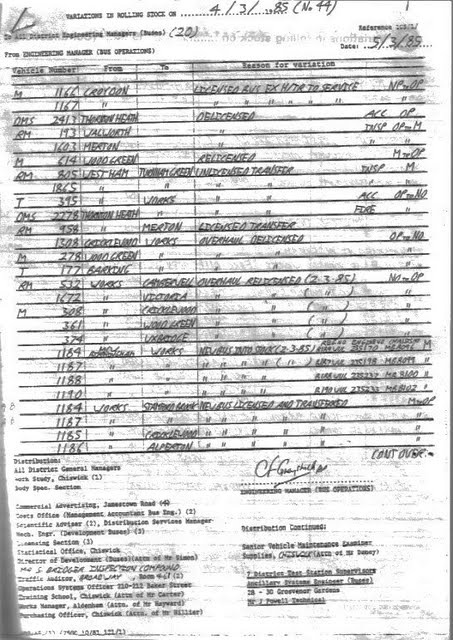 VARIATIONS IN ROLLING STOCK ON 4/3/1985 (No 44)
To All District Engineering Managers (Buses) (20)
Reference
From ENGINEERING MANAGER (BUS OPERATIONS)
Date: 5/3/85
Vehicle Number From To Reason for variation
M 1166 CROYDON LICENSED BUS EX H/TR TO SERVICE NP to OP
1167 " " " " " "
DMS 2413 THORNTON HEATH DELICENSED ACC OP
RM 193 WALWORTH " INSP OP to M
1603 MERTON " " "
M 614 WOOD GREEN RELICENSED M to OP
RM 805 WEST HAM TURNHAM GREEN UNLICENSED TRANSFER INSP M
1865 " " " "
T 395 " WORKS " ACC OP to NO
DMS 2278 THORNTON HEATH " " FIRE "
RM 958 " MERTON LICENSED TRANSFER
1308 CRICKLEWOOD WORKS OVERHAUL DELICENSED OP to NO
M 278 WOOD GREEN " " "
T 177 BARKING " " "
RM 532 WORKS CAMBERWELL OVERHAUL RELICENSED (2-3-85) NO to OP
1672 " VICTORIA " " ( " )
M 308 " CRICKLEWOOD " " ( " )
361 " WOOD GREEN " " ( " )
374 " UXBRIDGE " " ( " )
1184 WORKS NEW BUS INTO STOCK (2-3-85) M
1187 " " " " " " ( " ) "
1188 " " " " " "
1190 " " " " " "
1184 WORKS STAMFORD BROOK NEW BUS LICENSED AND TRANSFERRED M to OP
1187 " " " " " " "
1185 " CRICKLEWOOD " " " " "
1186 " ALPERTON " " " " "
CONT OVER
Distribution:
All District General Managers
Work Study, Chiswick (1)
Body Spec. Section
ENGINEERING MANAGER (BUS OPERATIONS)
Commercial Advertising, Jamestown Road
Costs Office (Management Accountant Bus Eng.) (2)
Scientific Adviser (2), Distribution Services Manager
Mech. Engr. (Development Buses) (3)
Licensing Section (2)
Statistical Office, Chiswick
Director of Development (Buses) (Attn of Mr Simon)
Mr S BRIDGER INSPECTION COMPOUND
Traffic Auditor, BROADWAY, Room
Operations Systems Officer 210-212 Baker Street
Training School, Chiswick (Attn. of Mr Carter)
Works Manager, Aldenham (Attn. of Mr Hayward)
Purchasing Officer, Chiswick (Attn. of Mr Hillier)
Distribution Continued:
Senior Vehicle Maintenance Examiner
Supplies, CHISWICK (Attn of Mr Dabey)
7 District Test Station Supervisors
Ancillary Systems Engineer (Buses)
28 - 30 Grosvenor Gardens
Mr J Powell Technical